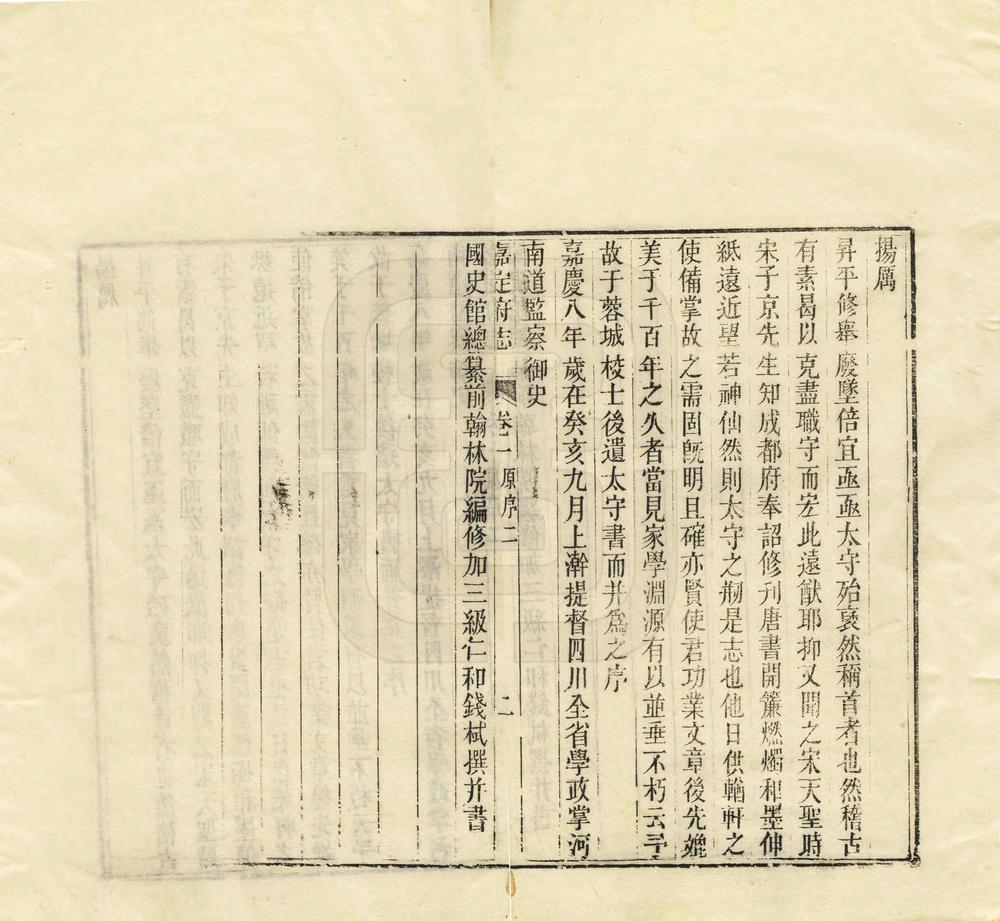 揚厲
昇平修舉廢墜倍宜亟亟太守殆裒然稱首者也然稽古
有素曷以克盡職守而宏此遠猷耶抑又聞之宋天聖時
宋子京先生知成都府奉詔修刋唐書開簾燃燭和墨伸
紙遠近望若神仙然則太守之剏是志也他日供輶軒之
使備掌故之需固旣明且確亦賢使君功業文章後先媲
美于千百年之久者當見家學淵源有以並垂不朽云予
故于蓉城校士後遺太守書而并爲之序
嘉慶八年歲在癸亥九月上澣提督四川全省學政掌河
南道監察御史
嘉定府志 卷一 原序二 二
國史館總纂前翰林院編修加三級仁和錢栻撰并書